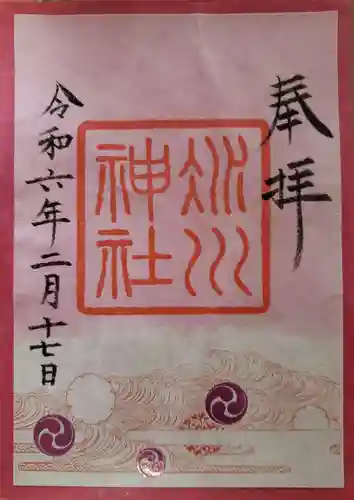 奉拝
氷川
神社
令和六年二月十七日